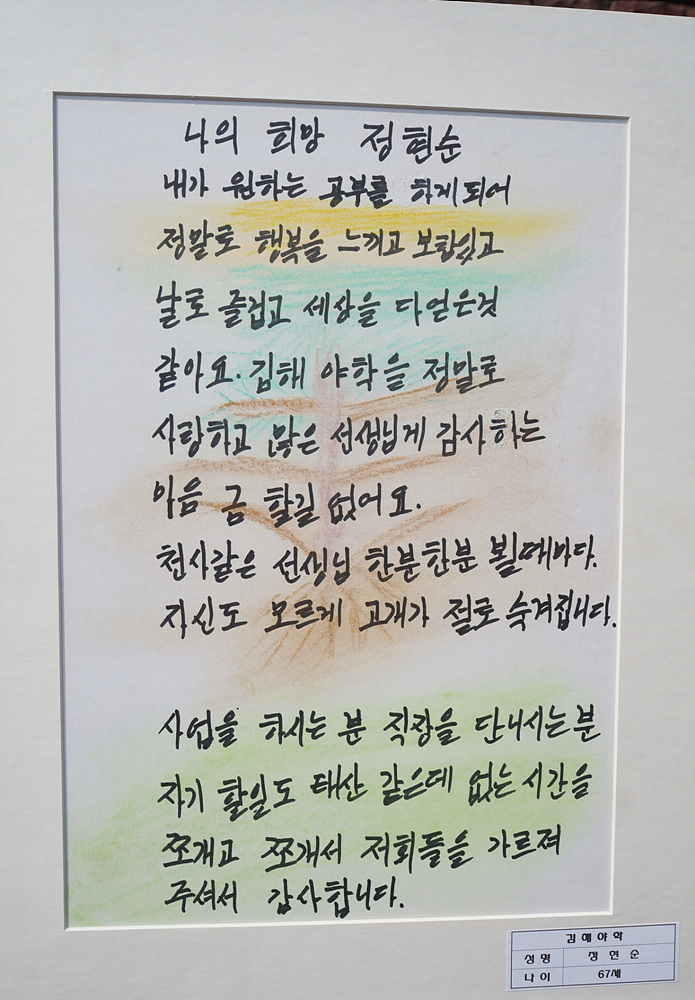 나의 희망 정현순
내가 원하는 공부를 하게되어
정말로 행복을 느끼고 보람있고
날로 즐겁고 세상을 다얻은것
같아요. 김해 야학을 정말로
사랑하고 많은 선생님게 감사하는
마음 금 할길 없어요.
천사같은 선생님 한분한분 뵐때마다.
자신도 모르게 고개가 절로 숙겨집니다.
사업을 하시는 분 직장을 단니시는분
자기 할일도 태산 같은데 없는 시간을
쪼개고 쪼개서 저희들을 가르져
주셔서 감사합니다.
김해야학
성명 정현순
나이 67세